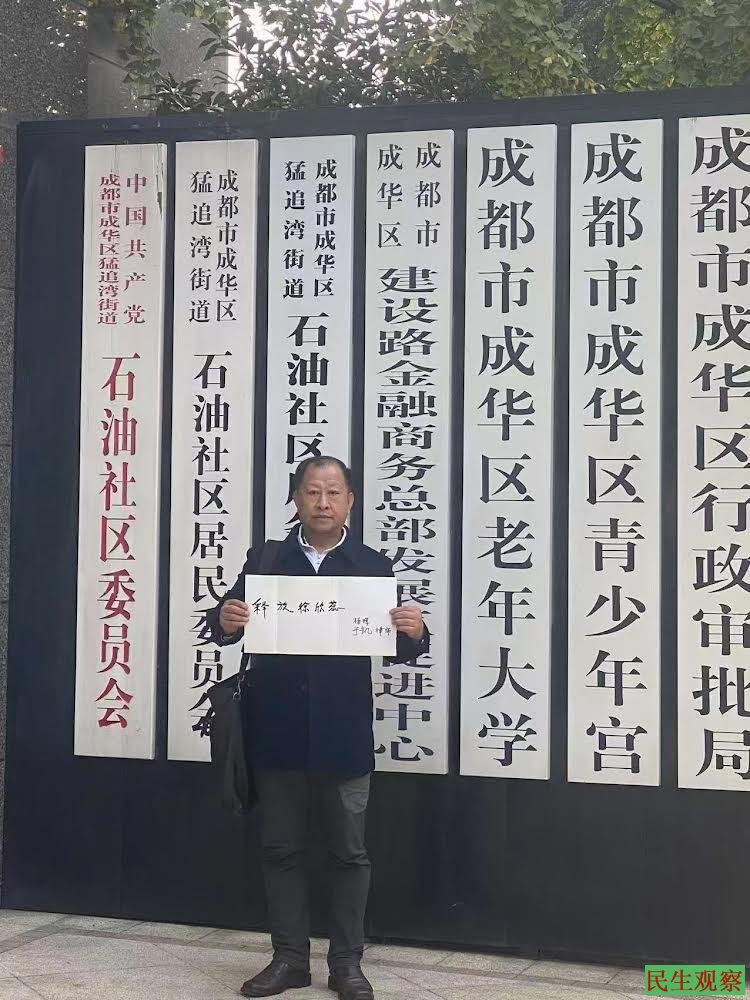 中国共产党
成都市成华区猛追湾街道
石油社区委员会
成都市成华区
猛追湾街道
石油社区居民委员会
成都市成华区
猛追湾街道
石油社区
成都市
成华区
建设路金融商务总部发展促进中心
成都市成华区老年大学
成都市成华区青少年宫
成都市成华区行政审批局
释放徐欣
律师
民生观察